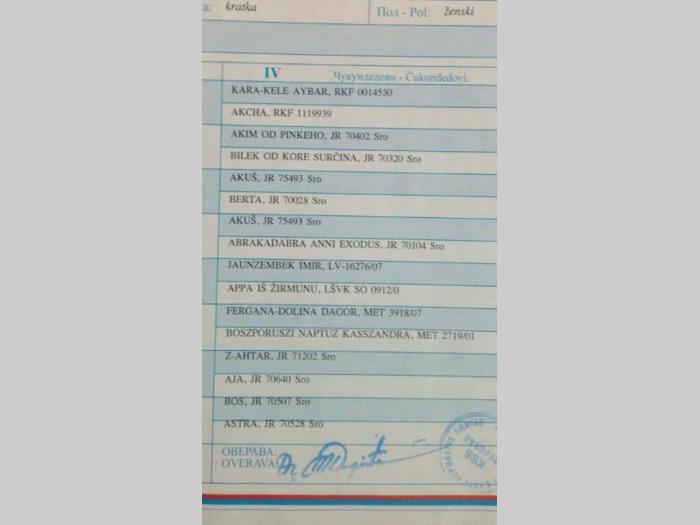 a: kratka
Пол - Pol: ženski
IV Чукундедови - Čukundedovi:
KARA-KELE AYBAR, RKF 0014530
AKCHA, RKF 1119939
AKIM OD PINKEHO, JR 70402 Sro
BILEK OD KORE SURČINA, JR 70320 Sro
AKUŠ, JR 75493 Sro
BERTA, JR 70028 Sro
AKUŠ, JR 75493 Sro
ABRAKADABRA ANNI EXODUS, JR 70104 Sro
JAUNZEMBEK IMIR, LV-16276/07
APPA IŠ ŽIRMUNU, LŠVK SO 0912/0
FERGANA-DOLINA DAGOR, MET 3918/07
BOSZPORUSZI NAPTUZ KASSZANDRA, MET 2719/01
Z-AHTAR, JR 71202 Sro
AJA, JR 70640 Sro
BOS, JR 70507 Sro
ASTRA, JR 70528 Sro
ОВЕРАВА:
OVERAVA:
KSS